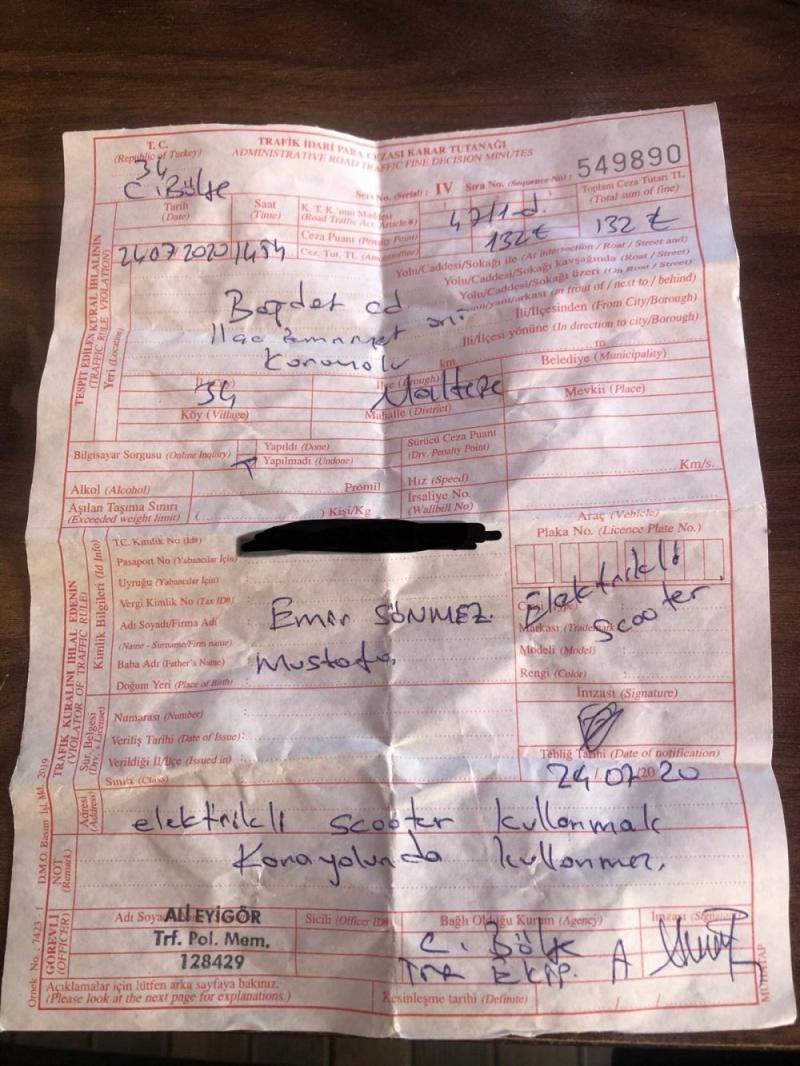 T. C.
(Republic of Turkey)
34
C. Bölge
TRAFİK İDARİ PARA CEZASI KARAR TUTANAĞI
ADMINISTRATIVE ROAD TRAFFIC FINE DECISION MINUTES
Seri No. (Serial) : IV Sıra No. (Sequence No) : 549890
Tarih (Date)
Saat (Time)
K. T. K. 'nın Maddesi
(Road Traffic Act. Article #)
47/1-d.
Toplam Ceza Tutarı TL
(Total sum of fine)
Ceza Puanı (Penalty Point)
132 ₺
132 ₺
24 07 2020 1454
Cez. Tut. TL
TESPİT EDİLEN KURAL İHLALİNİN
(TRAFFIC RULE VIOLATION)
Yeri (Location)
Yolu/Caddesi/Sokağı ile (At intersection / Roat / Street and)
Yolu/Caddesi/Sokağı kavşağında (Roat / Street)
Yolu/Caddesi/Sokağı üzeri (On Roat / Street)
önü/yanı/arkası (in front of / next to / behind)
İli/İlçesinden (From City/Borough)
İli/İlçesi yönüne (In direction to city/Borough)
Bağdat cd
km m
34
Maltepe
Belediye (Municipality)
Köy (Village)
Mahalle (District)
Mevkii (Place)
Bilgisayar Sorgusu (Online Inquiry)
Yapıldı (Done)
Yapılmadı (Undone)
Sürücü Ceza Puanı
(Drv. Penalty Point)
Alkol (Alcohol) Promil
Hız (Speed) Km/s.
Aşılan Taşıma Sınırı
(Exceeded weight limit) ( ) Kişi/Kg
İrsaliye No.
(Wallbill No)
TRAFİK KURALINI İHLAL EDENİN
(VIOLATOR OF TRAFFIC RULE)
Kimlik Bilgileri (Id Info)
TC. Kimlik No (Id#)
Pasaport No (Yabancılar İçin)
Uyruğu (Yabancılar İçin)
Vergi Kimlik No (Tax ID#)
Adı Soyadı/Firma Adı : Emir SÖNMEZ
(Name - Surname/Firm name)
Baba Adı (Father's Name) Mustafa
Doğum Yeri (Place of Birth)
Araç (Vehicle)
Plaka No. (Licence Plate No.)
Elektrikli
Scooter.
Cinsi (Type)
Markası (Trademark)
Modeli (Model)
Rengi (Color)
İmzası (Signature)
Sür. Belgesi
(Drv.'s License)
Numarası (Number)
Veriliş Tarihi (Date of Issue) :
Verildiği İl/İlçe (Issued in) :
Sınıfı (Class)
Tebliğ Tarihi (Date of notification)
24/07/2020
Adresi
(Address)
NOT
(Remark)
elektrikli scooter kullanmak
Karayolunda kullanmak.
GÖREVLİ
(OFFICER)
Adı Soyadı
ALİ EYİGÖR
Trf. Pol. Mem.
128429
Sicili (Officer ID#)
Bağlı Olduğu Kurum (Agency)
C. Bölge
EKİP. A
İmzası (Signature)
Açıklamalar için lütfen arka sayfaya bakınız.
(Please look at the next page for explanations.)
Kesinleşme tarihi (Definite) / /
Örnek No. : 7423 - 1 D.M.O. Basım İşl. Md. 2019
MUHATAP